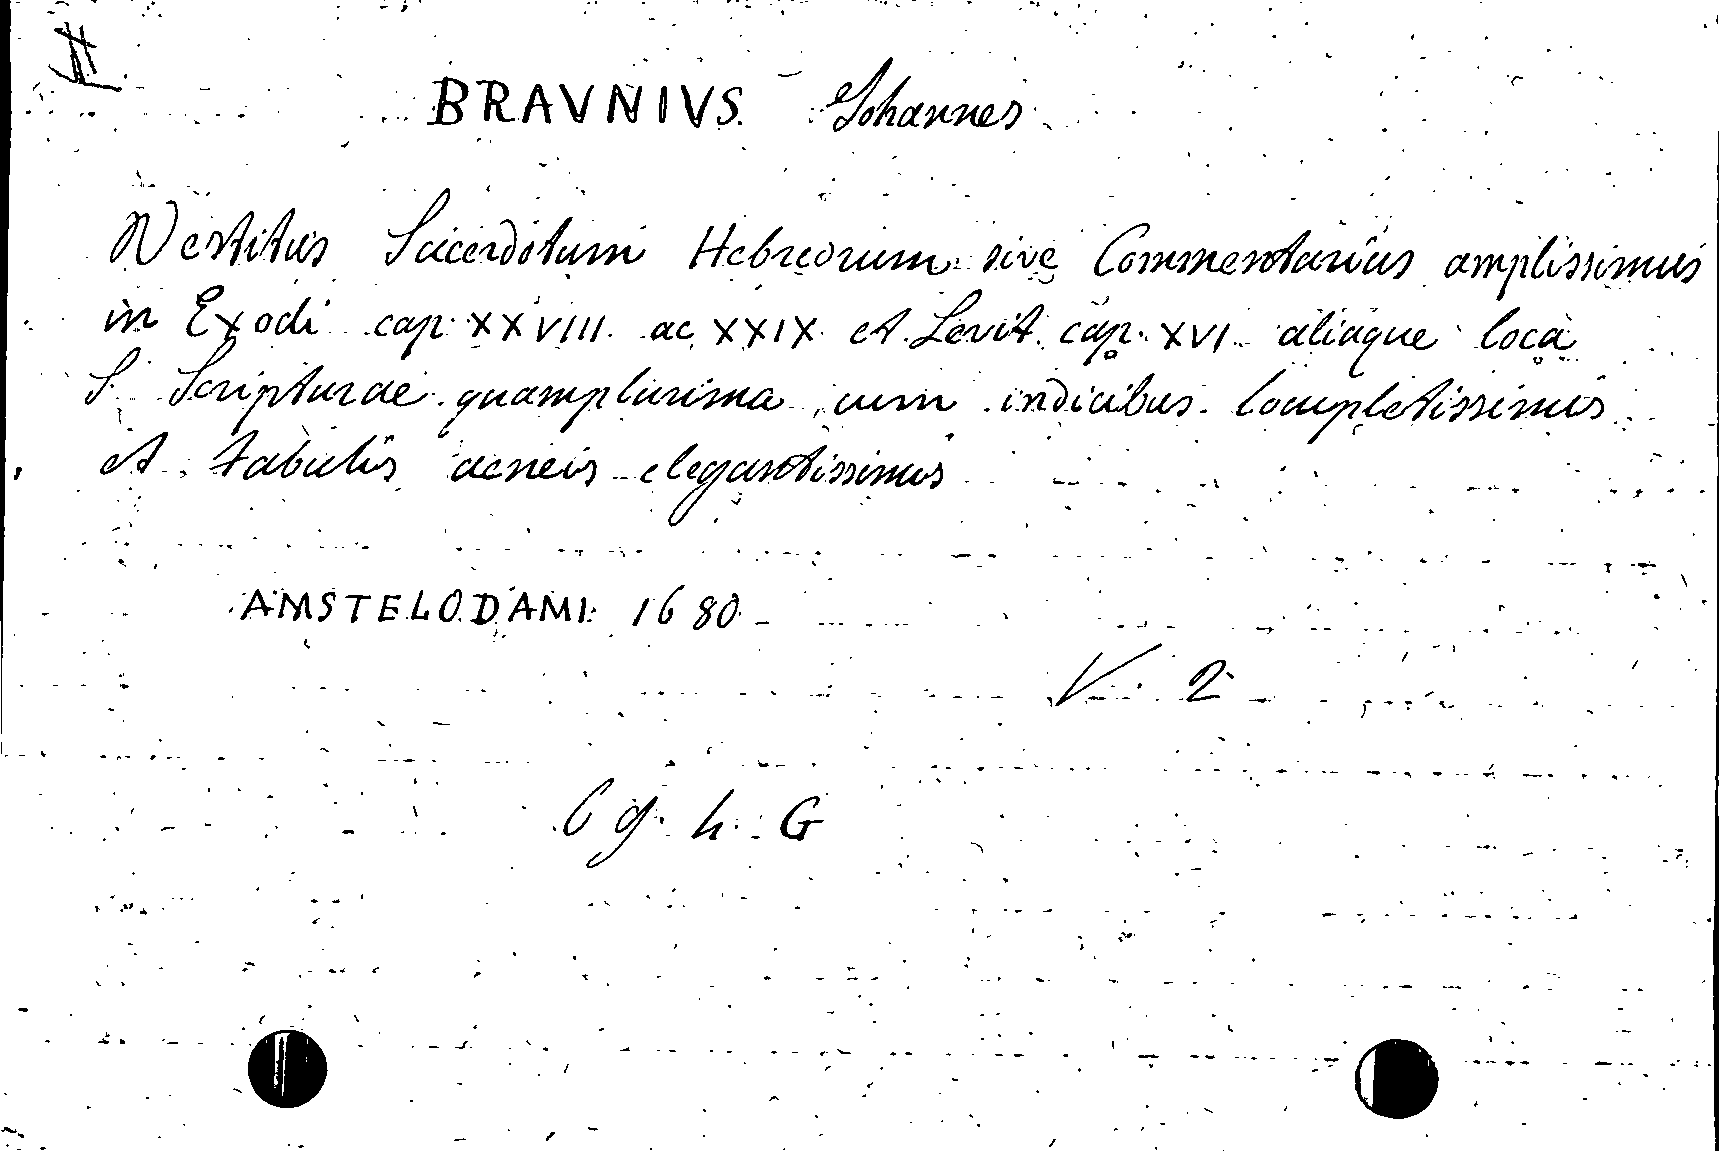 BRAVNIVS Johannes
Vestitus Sacerdotum Hebreorum sive Commentarius amplissimus
in Exodi cap. XXVIII. ac XXIX et Levit. cap. XVI aliaque loca
S. Scripturae quamplurima cum indicibus locupletissimis
et tabulis aeneis elegantissimis
AMSTELODAMI 1680
V. 2
6 g. h. G